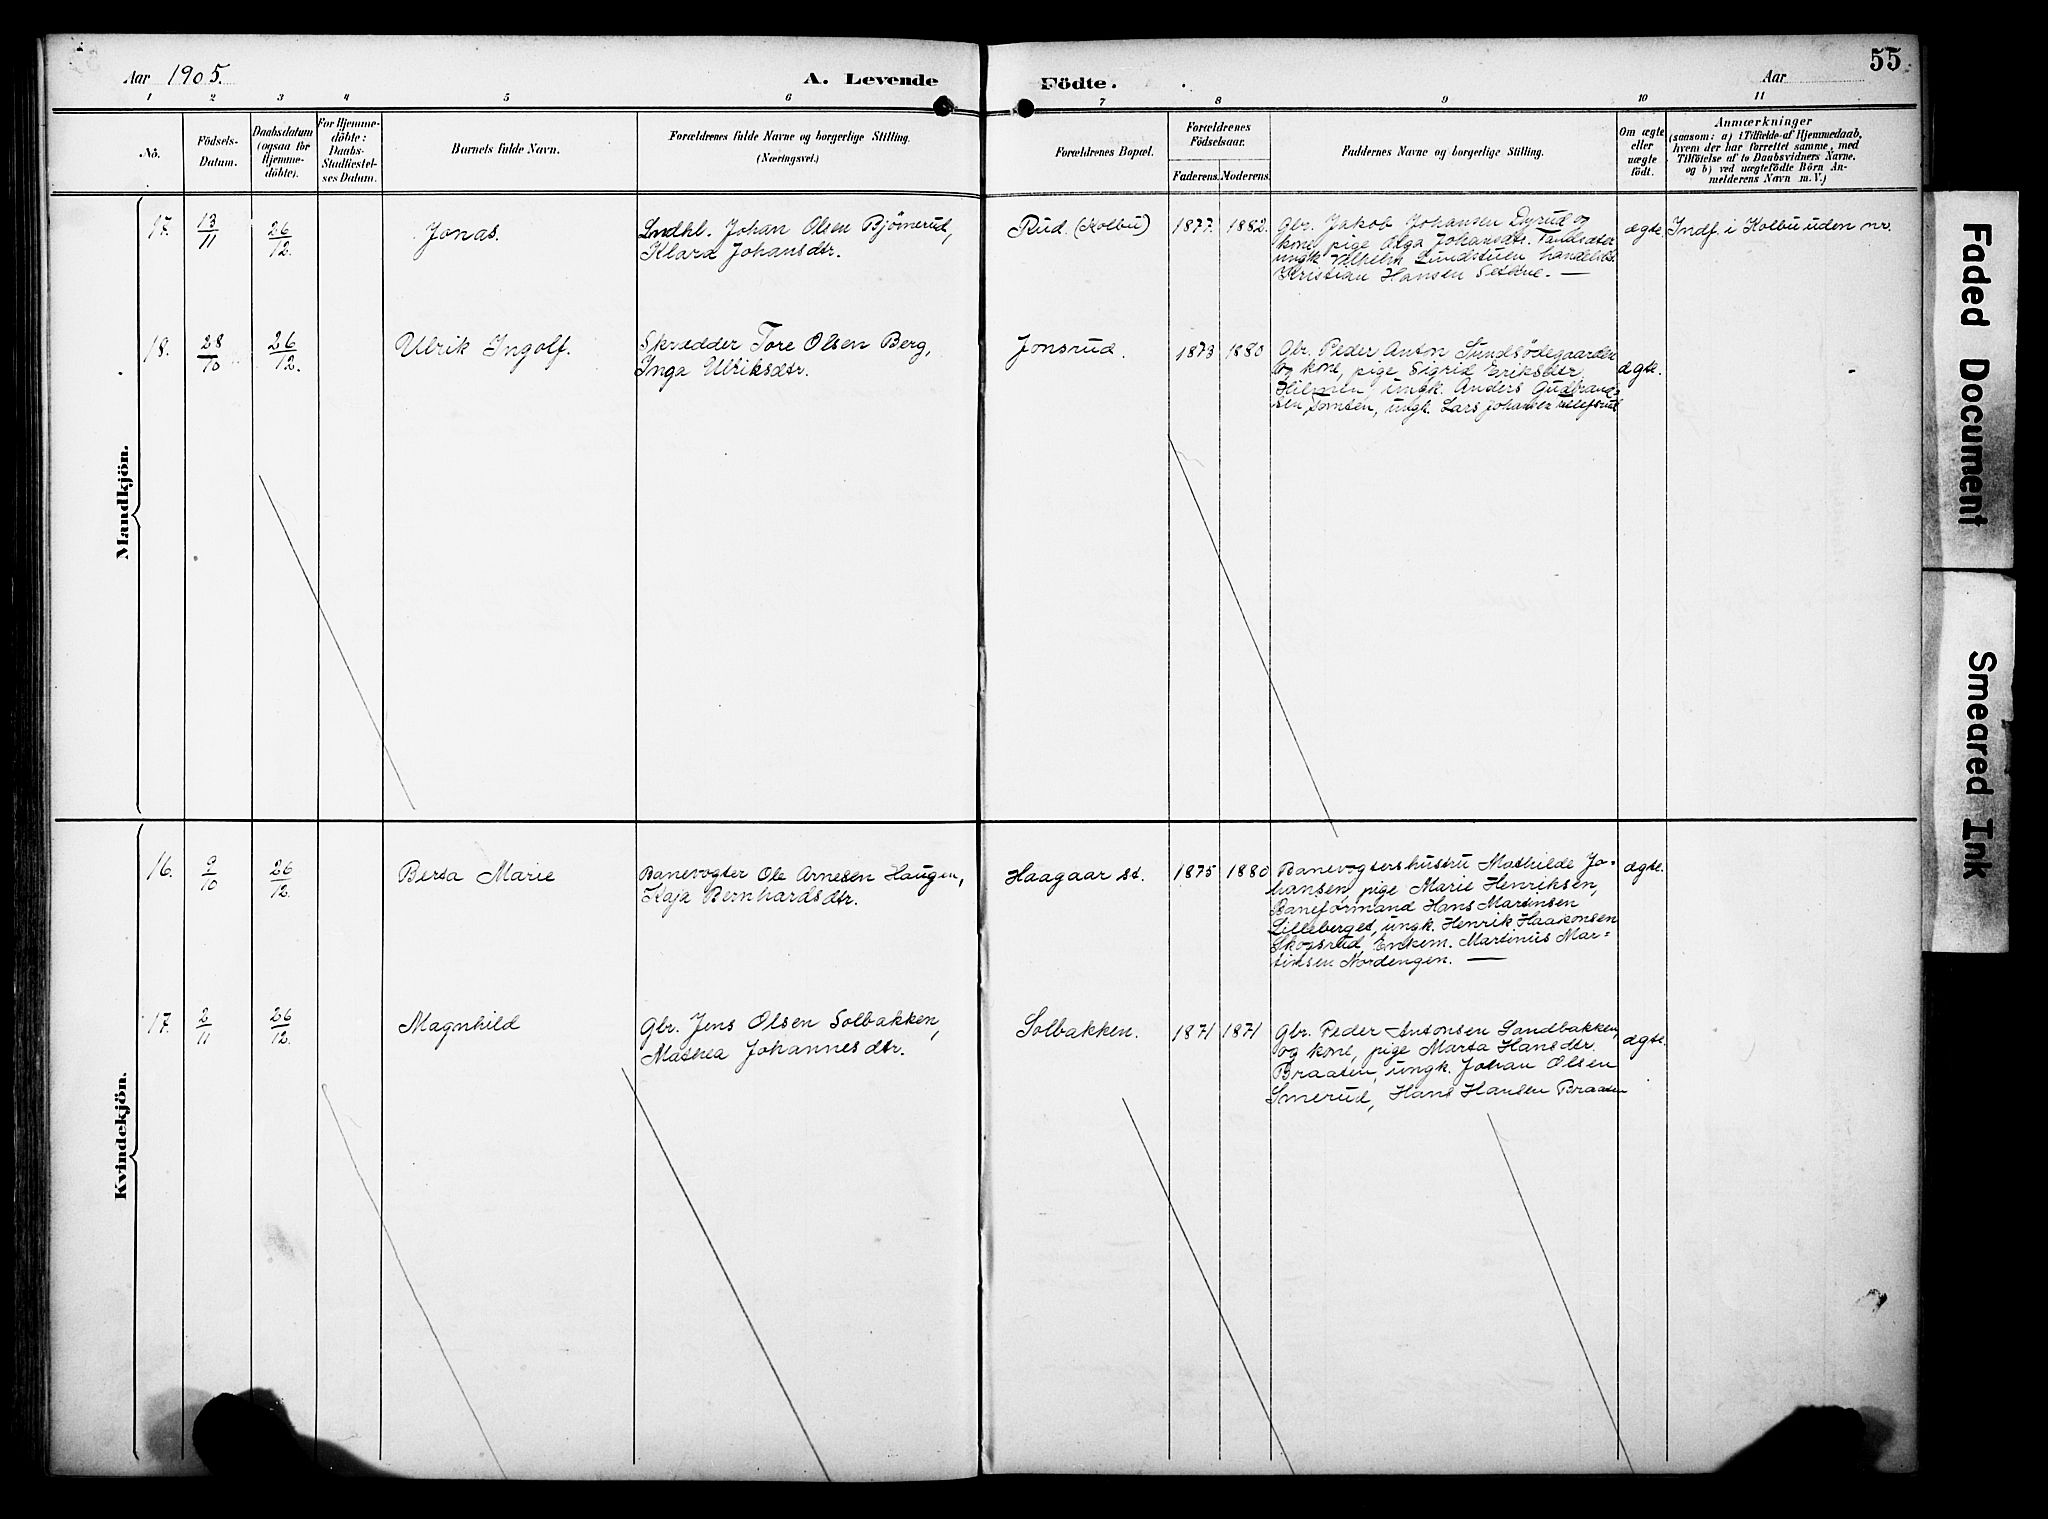 Aar 1905.
A. Levende
Födte.
Aar
55
1 2 3 4 5 6 7 8 9 10 11
No.
Födsels-
Datum.
Daabsdatum
(ogsaa for
Hjemme-
döbte).
For Hjemme-
döbte:
Daabs-
Stadfæstel-
ses Datum.
Barnets fulde Navn.
Forældrenes fulde Navne og borgerlige Stilling.
(Næringsvei.)
Forældrenes Bopæl.
Forældrenes
Födselsaar.
Faderens. Moderens.
Faddernes Navne og borgerlige Stilling.
Om ægte
eller
uægte
födt.
Anmærkninger
(saasom: a) i Tilfælde af Hjemmedaab,
hvem der har forrettet samme, med
Tilföielse af to Daabsvidners Navne.
og b) ved uægtefödte Börn An-
melderens Navn m. V.)
Mandkjön.
17. 13/11 26/12. Jonas.
Lndhl. Johan Olsen Bjömerud,
Klara Johansdtr.
Rud. (Kolbu) 1877. 1882.
Gbr. Jakob Johansen Dyrud og
kone, pige Olga Johansdtr.
ungk. Vilhelm Lundstuen
Kristian Hansen Sethne. —
ægte. Indf. i Kolbu uden nr.
18. 28/10 26/12. Ulrik Ingolf.
Skrædder Tore Olsen Berg,
Inga Ulriksdtr.
Jonsrud. 1873 1880
Gbr. Peder Anton Sundsödegaarden
og kone, pige Sigrid Eriksdtr.
Hilmen, ungk. Anders Gudbrand-
sen Tömten, ungk. Lars Johansen
ægte.
Kvindekjön.
16. 9/10 26/12. Berta Marie
Banevogter Ole Arnesen Haugen,
Kaja Bernhardsdtr.
Haagaar st. 1875 1880
Banevogtershustru Mathilde Jo-
hansen, pige Marie Henriksen,
Baneformand Hans Martinsen
Lilleberget, ungk. Henrik Haakonsen
Skogsrud, Enkem. Martinus Mar-
tinsen Nordengen. —
ægte.
17. 2/11 26/12. Magnhild
Gbr. Jens Olsen Solbakken,
Mathea Johannesdtr.
Solbakken. 1871 1871
Gbr. Peder Antonsen Sandbakken,
og kone, pige Marta Hansdtr.
Braaten, ungk. Johan Olsen
Smerud, Hans Hansen Braaten
ægte.
Faded Document
Smeared Ink